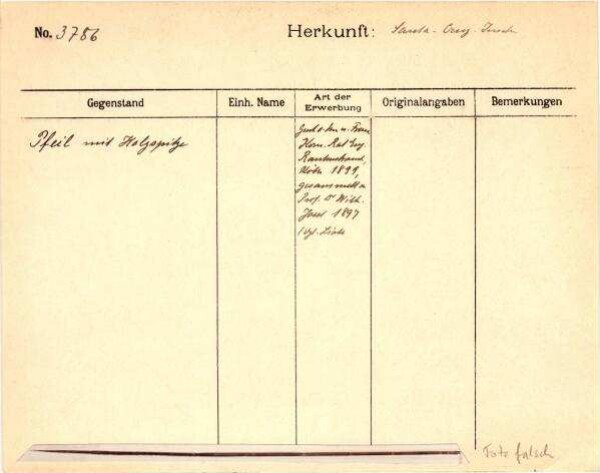 No. 3786 Herkunft: Santa-Cruz-Inseln
Gegenstand Einh. Name Art der Erwerbung Originalangaben Bemerkungen
Pfeil mit Holzspitze
Gesch. v. u. Frau
Kom. Rat Eug.
Rautenstrauch,
Köln 1899,
gesammelt v.
Prof. Dr Wilh.
Joest 1897
(vgl. Liste
Foto falsch